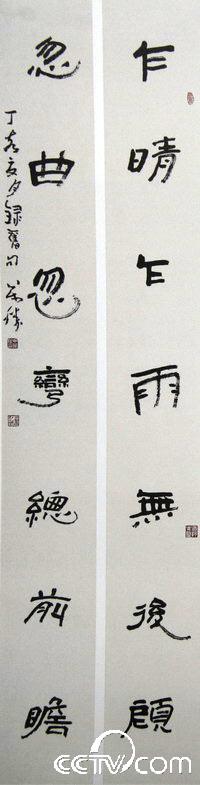 乍晴乍雨無後顧
忽曲忽彎總前瞻
丁亥夏夕錄舊句
CCTV.com